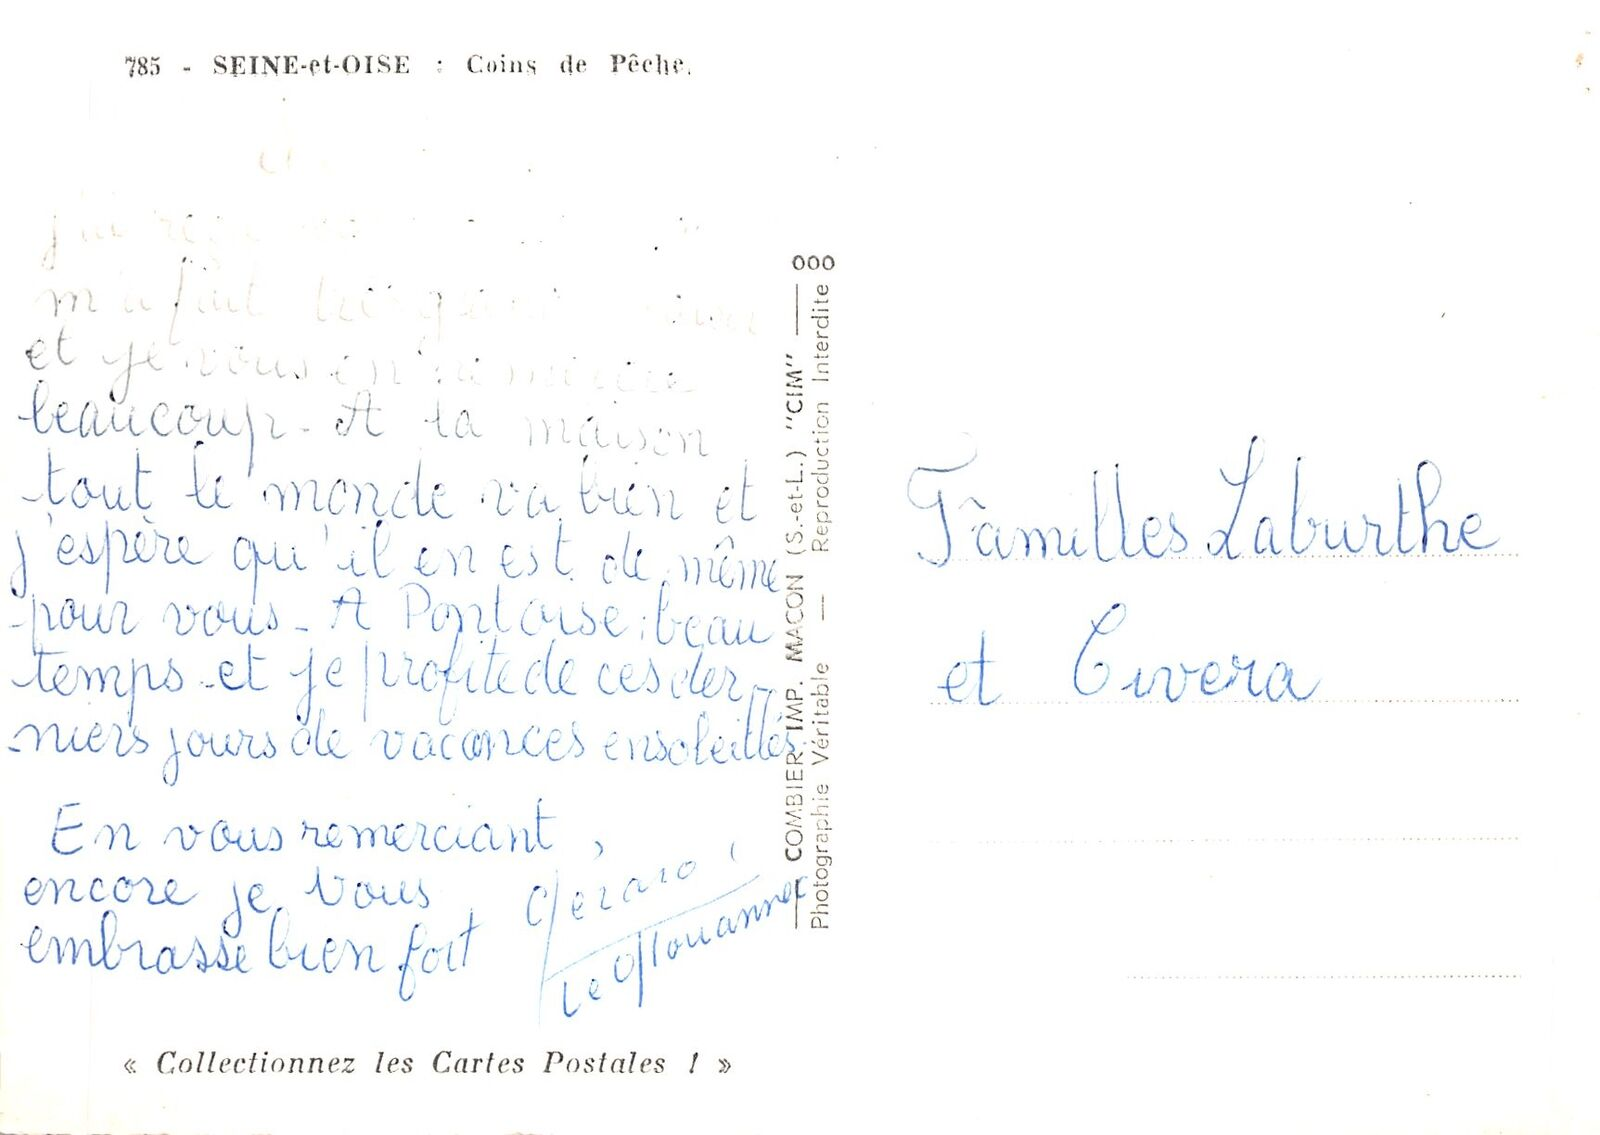 785 - SEINE-et-OISE : Coins de Pêche.
j'ai reçu
m'a fait très
et je vous en remercie
beaucoup - A la maison
tout le monde va bien et
j'espère qu'il en est de même
pour vous - A Pontoise : beau
temps et je profite de ces der-
niers jours de vacances ensoleillés.
En vous remerciant,
encore je vous
embrasse bien fort
Gérard
COMBIER IMP. MACON (S.-et-L.) "CIM" 000
Photographie Véritable — Reproduction Interdite
« Collectionnez les Cartes Postales ! »
Familles Laburthe
et Civera